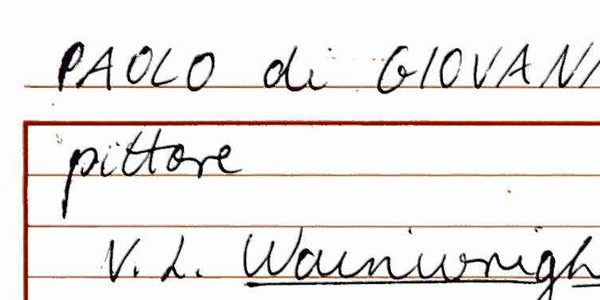 PAOLO di GIOVANI
pittore
V. L. Wainwrigh